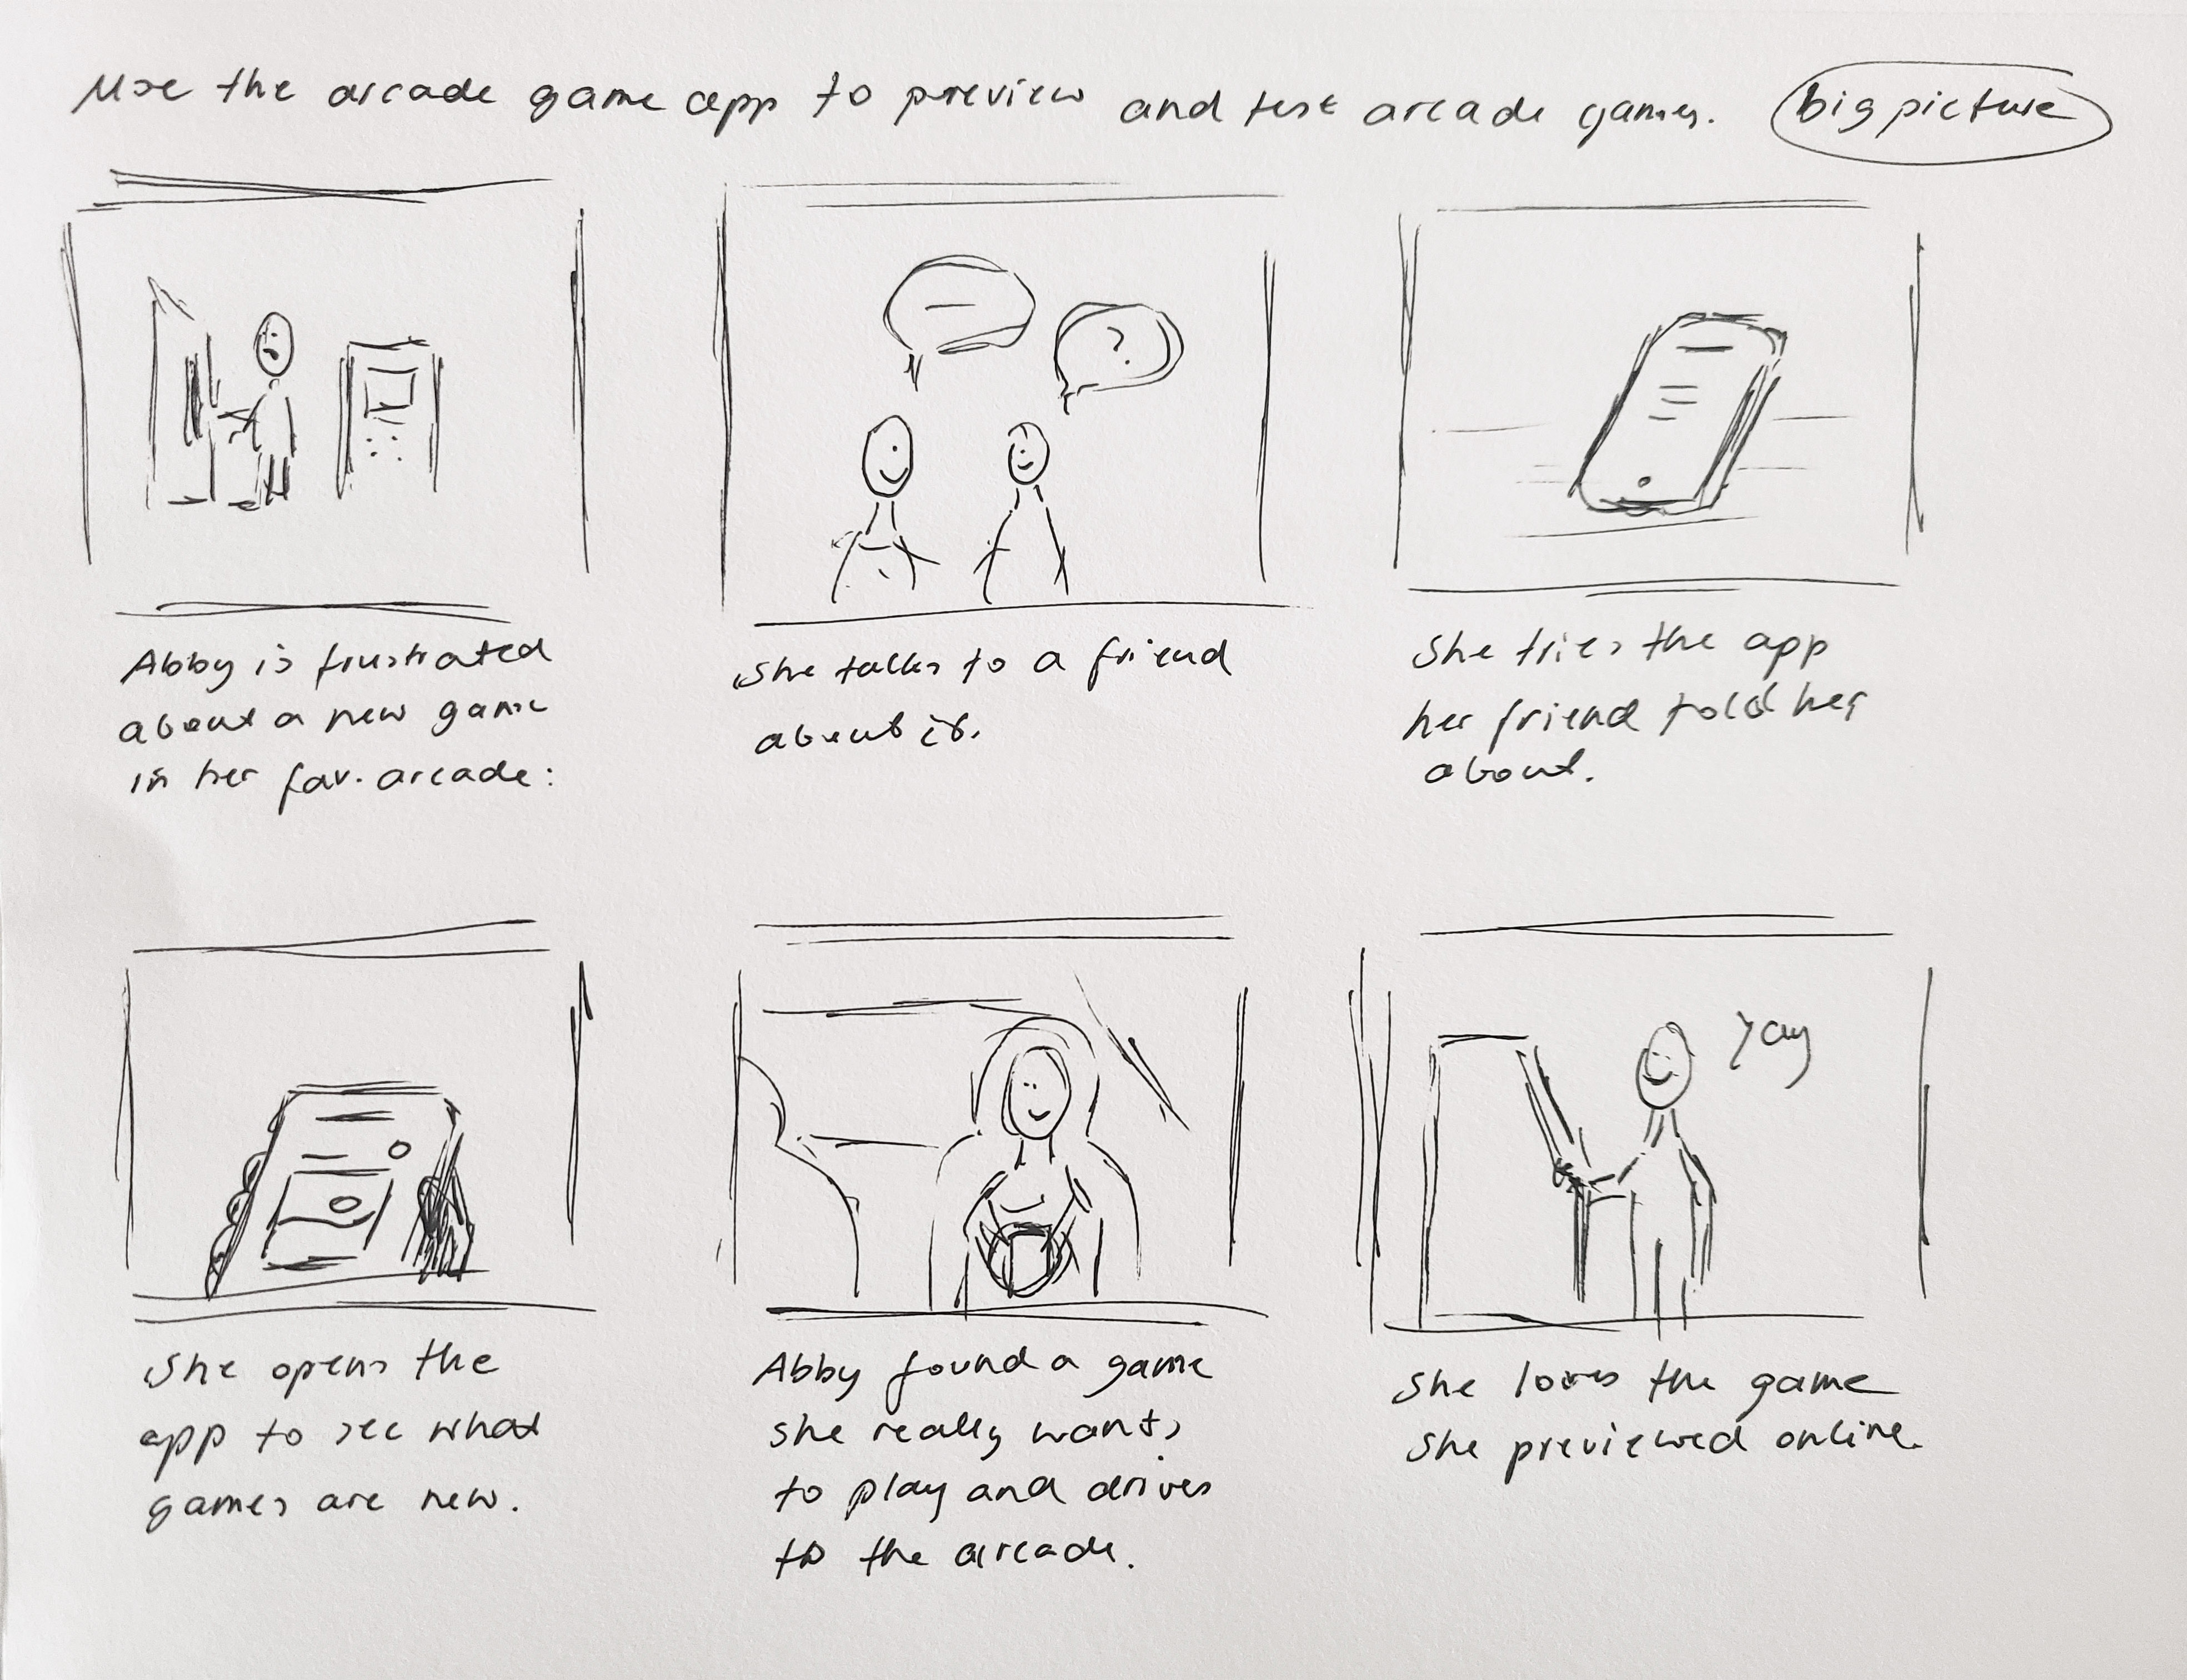 Use the arcade game app to preview and test arcade games. big picture
Abby is frustrated
about a new game
in her fav. arcade:
?
She talks to a friend
about it.
She tries the app
her friend told her
about.
She opens the
app to see what
games are new.
Abby found a game
she really wants
to play and drives
to the arcade.
Yay
She loves the game
she previewed online.